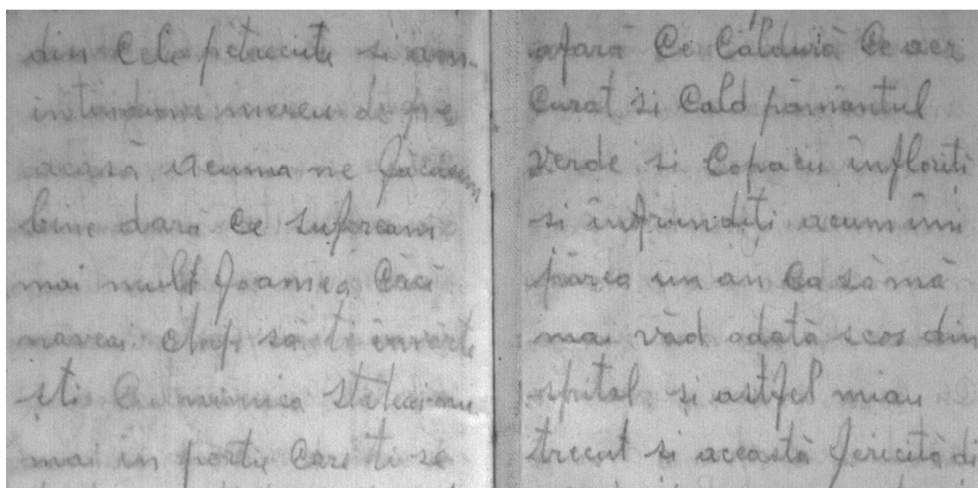 din Cele petrecute si am
mereu de pe
acasă acuma ne făceam
bine dară Ce sufream
mai mult foamea Căci
naveai chip să ti învârte
sti Cu nimica stateai nu
mai in portie Care ti se
afară Ce Căldură Ce aer
Curat si Cald pământul
verde si Copacii infloriti
si infrunditi acum imi
părea un an Ca să mă
mai văd odată scos din
spital si astfel miau
trecut si această fericită de